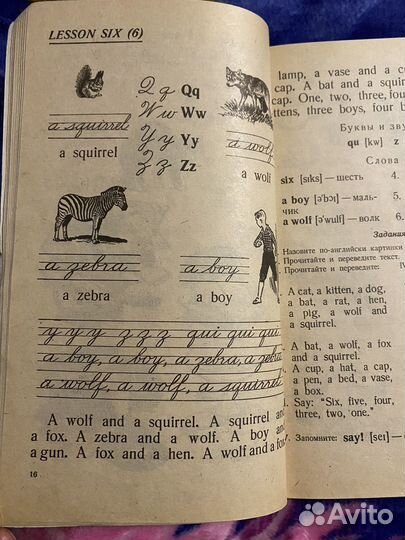 LESSON SIX (6)
Q q Qq
W w Ww
Y y Yy
Z z Zz
a squirrel
a squirrel
a wolf
a wolf
a zebra
a boy
a zebra
a boy
y y y z z z qui qui qui
a boy, a boy, a zebra, a zebra
a wolf, a wolf, a squirrel
A wolf and a squirrel. A squirrel and
a fox. A zebra and a wolf. A boy and
a gun. A fox and a hen. A wolf and a fox
16
lamp, a vase and a
cap. A bat and a
cap. One, two, three, four
three boys, four
Буквы и
qu [kw] z
Слова
six [sıks] — шесть 4.
a boy [ə'bɔı] — маль-
чик
a wolf [ə'wulf] — волк 6.
Задания
Назовите по-английски картинки
Прочитайте и переведите текст.
Прочитайте и переведите:
A cat, a kitten, a dog,
a bat, a rat, a hen,
a pig, a wolf and
a squirrel.
A bat, a wolf, a fox
and a squirrel.
A cup, a hat, a cap,
a pen, a bed, a vase,
a box.
Say: "Six, five, four,
three, two, one."
Запомните: say! [seı] —
Avito